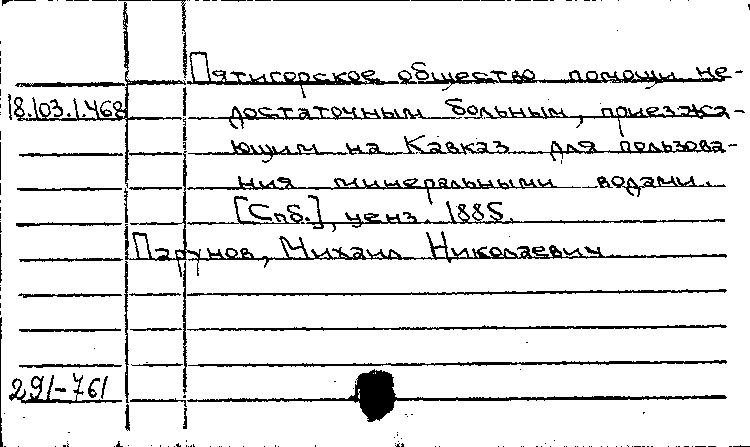 Пятигорское общество помощи не-
18.103.1.468 достаточным больным, приезжа-
ющим на Кавказ для пользова-
ния минеральными водами.
[Спб.], ценз. 1885.
Парунов, Михаил Николаевич
291-761